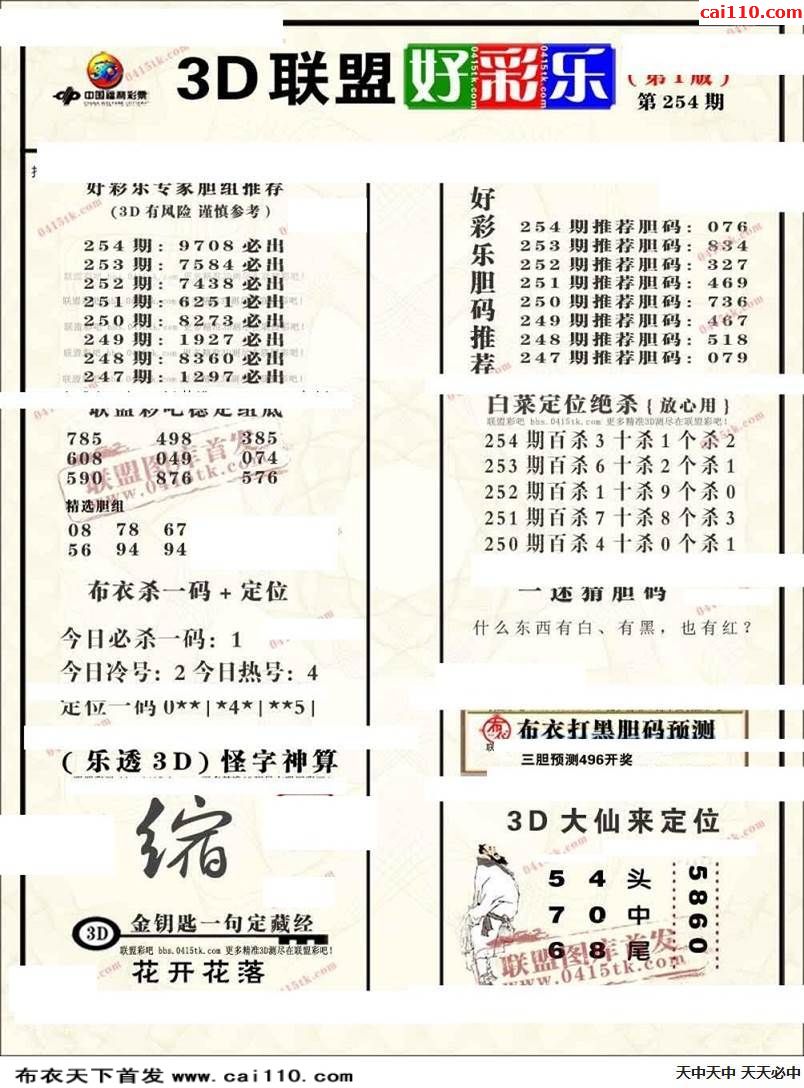 cai110.com
中国福利彩票
CHINA WELFARE LOTTERY
3D联盟好彩乐
(第1版)
第254期
好彩乐专家胆组推荐
(3D有风险 谨慎参考)
254期: 9708必出
253期: 7584必出
252期: 7438必出
251期: 6251必出
250期: 8273必出
249期: 1927必出
248期: 8360必出
247期: 1297必出
联盟彩吧稳定组底
785 498 385
608 049 074
590 876 576
联盟图库首发
www.0415tk.com
精选胆组
08 78 67
56 94 94
布衣杀一码+定位
今日必杀一码: 1
今日冷号: 2 今日热号: 4
定位一码 0**|*4*|**5|
(乐透3D)怪字神算
缩
3D 金钥匙一句定藏经
联盟彩吧 bbs.0415tk.com 更多精准3D测尽在联盟彩吧!
花开花落
好彩乐胆码推荐
254期推荐胆码: 076
253期推荐胆码: 834
252期推荐胆码: 327
251期推荐胆码: 469
250期推荐胆码: 736
249期推荐胆码: 467
248期推荐胆码: 518
247期推荐胆码: 079
白菜定位绝杀{放心用}
联盟彩吧 bbs.0415tk.com 更多精准3D测尽在联盟彩吧!
254期百杀3十杀1个杀2
253期百杀6十杀2个杀1
252期百杀1十杀9个杀0
251期百杀7十杀8个杀3
250期百杀4十杀0个杀1
一迷猜胆码
什么东西有白、有黑，也有红?
布衣打黑胆码预测
三胆预测496开奖
3D大仙来定位
5 4 头
7 0 中
6 8 尾
5860
联盟图库首发
www.0415tk.com
布衣天下首发 www.cai110.com
天中天中 天天必中